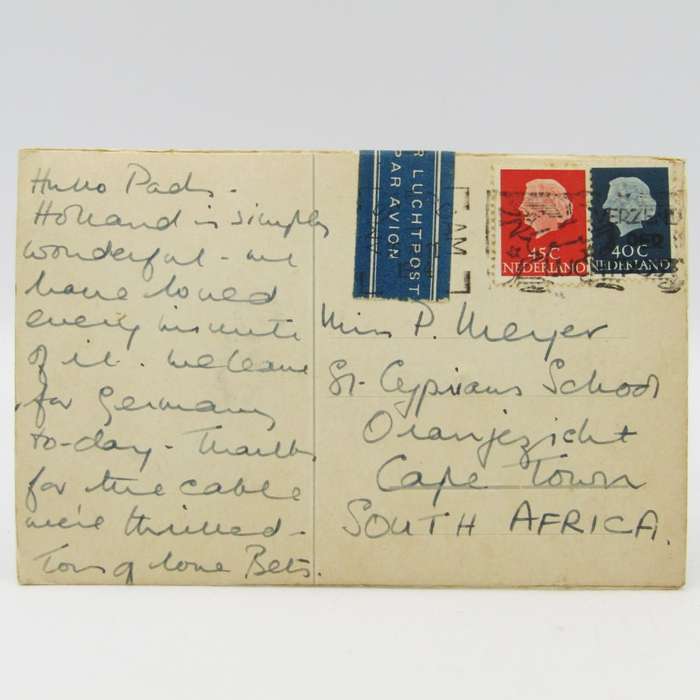 Hullo Pads -
Holland is simply
wonderful - we
have loved
every minute
of it. We leave
for Germany
to-day - Thanks
for the cable
we're thrilled -
Tons of love Bets.
LUCHTPOST
PAR AVION
45C
NEDERLAND
40C
NEDERLAND
Miss P. Meyer
St. Cyprians School
Oranjezicht
Cape Town
SOUTH AFRICA.